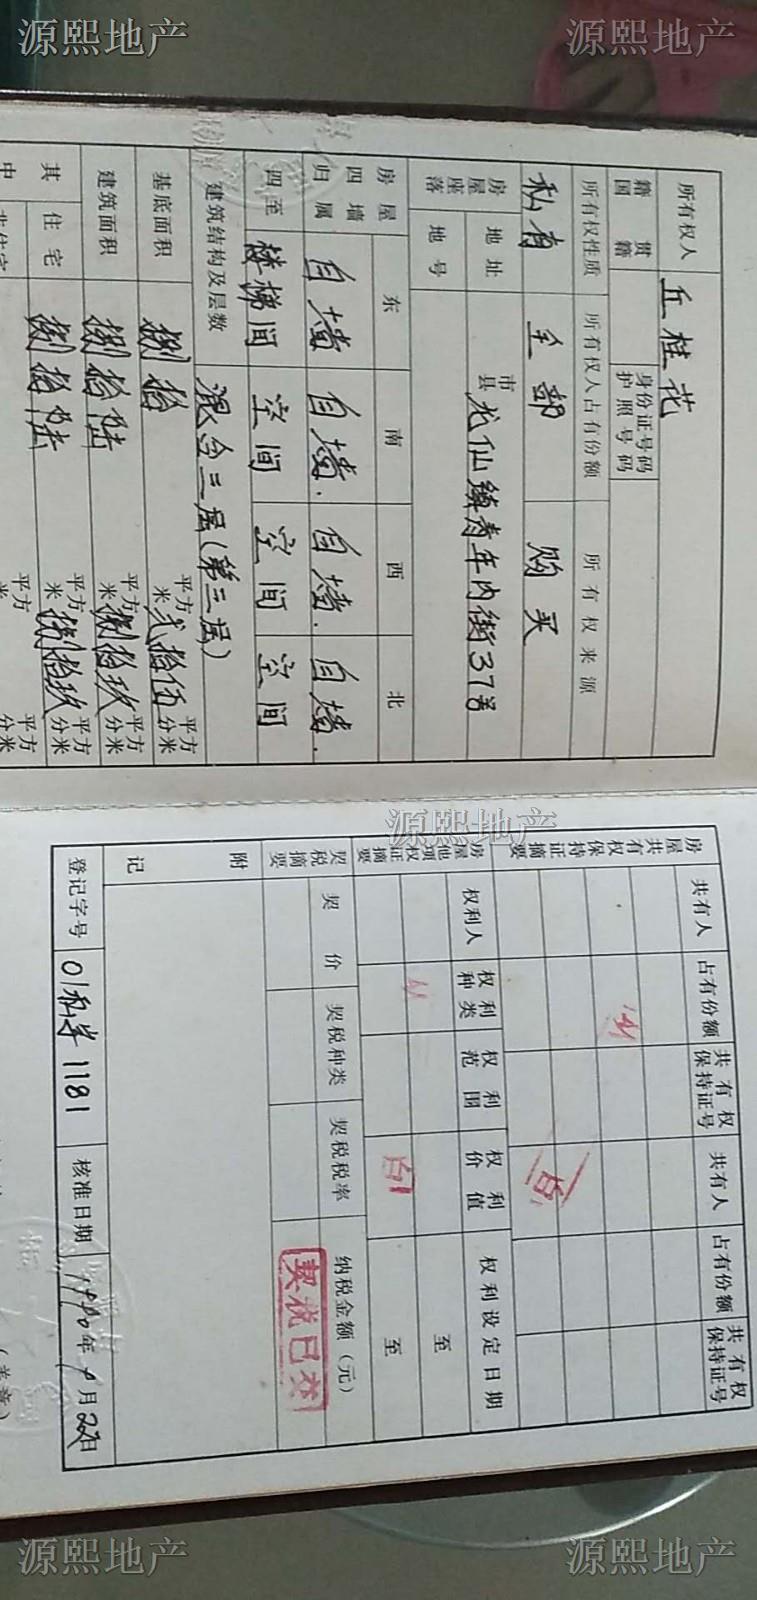 源熙地产
源熙地产
所有权人 丘桂花
籍贯 国籍 身份证号码 护照号码
所有权性质 所有权人占有份额 所有权来源
私有 全部 购买
房屋座落 地址 市县 龙仙镇青年内街37号
地号
房屋四墙归属 东 南 西 北
自墙 自墙. 自墙. 自墙.
四至 楼梯间 空间 空间 空间
建筑结构及层数 混合三层(第三层)
基底面积 捌拾 平方米 贰拾伍 平方分米
建筑面积 捌拾陆 平方米 捌拾玖 平方分米
其中 住宅 捌拾陆 平方米 捌拾玖 平方分米
非住宅 平方 平方
源熙地产
房屋共有权保持证摘要 共有人 占有份额 共有权保持证号 共有人 占有份额 共有权保持证号
房屋他项权证摘要 权利人 权利种类 权利范围 权利价值 权利设定日期
至
至
契税摘要 契价 契税种类 契税税率 纳税金额(元)
契税已交
附记
登记字号 01私字1181 核准日期 1990年9月22日
(盖章)
源熙地产
源熙地产